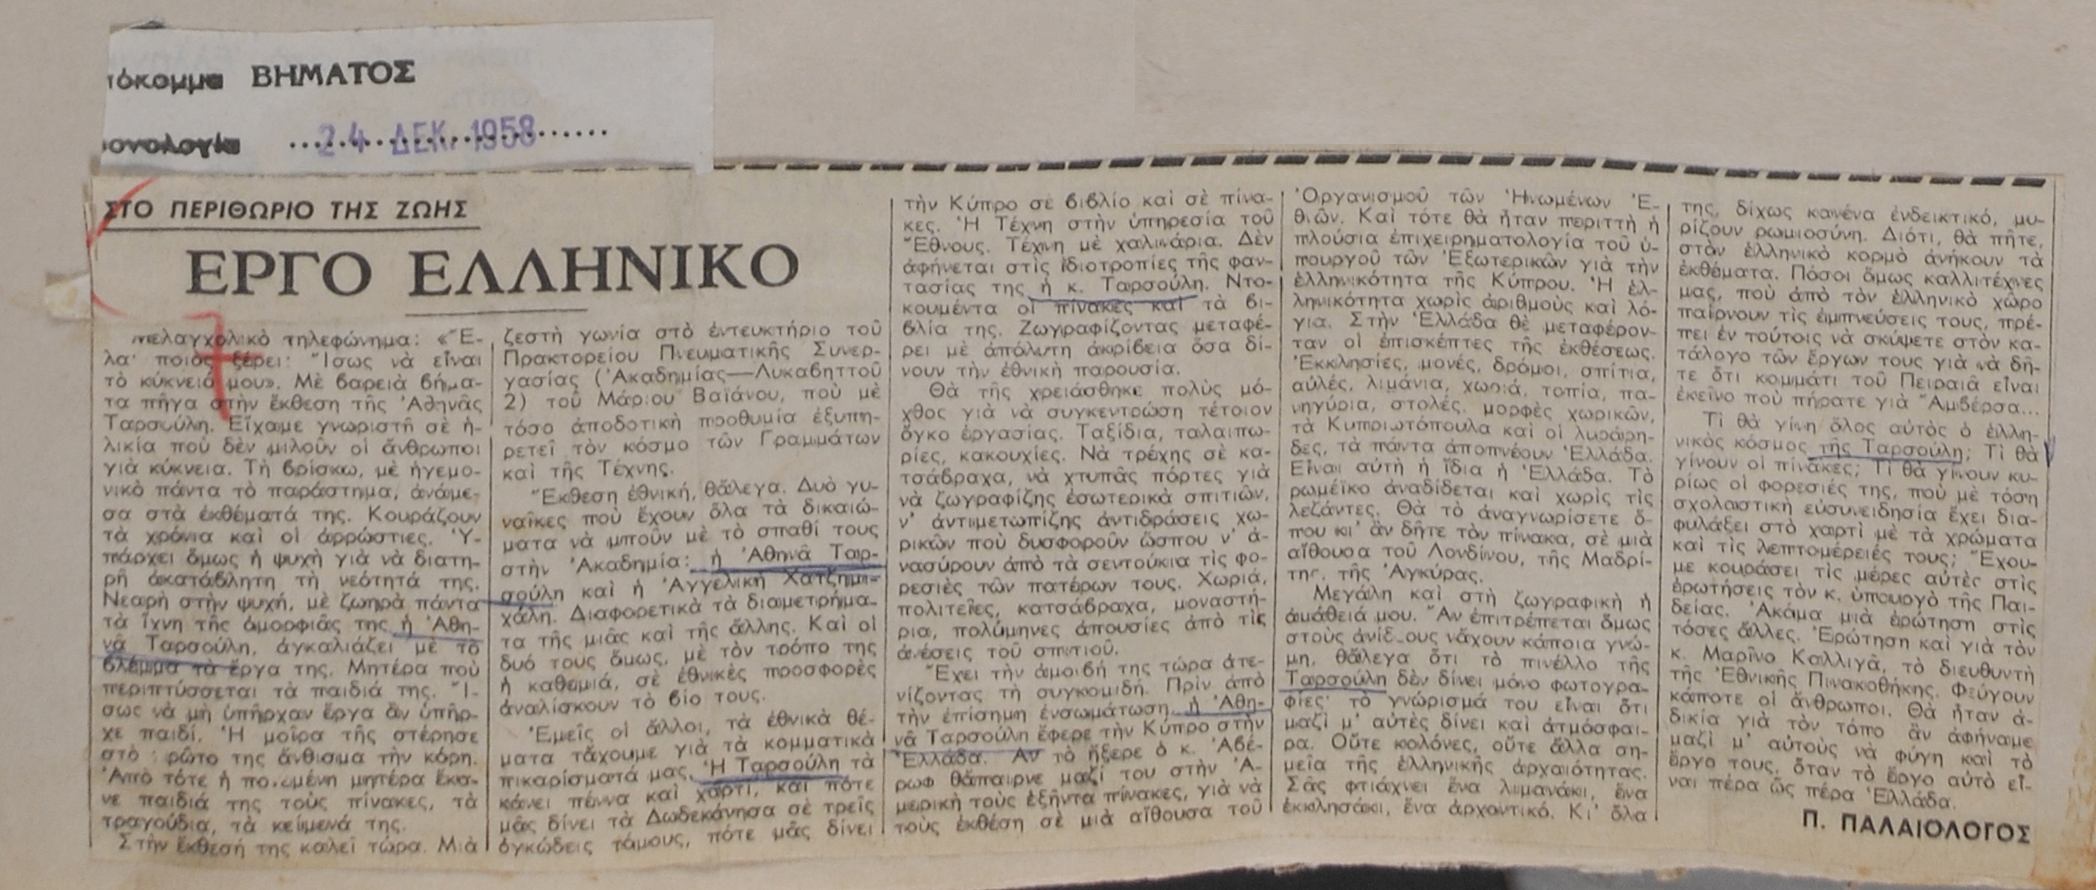 τόκομμα ΒΗΜΑΤΟΣ
ονολογία 24 ΔΕΚ. 1958
ΣΤΟ ΠΕΡΙΘΩΡΙΟ ΤΗΣ ΖΩΗΣ
ΕΡΓΟ ΕΛΛΗΝΙΚΟ
Μελαγχολικὸ τηλεφώνημα: «Ἔ-
λα· ποιὸς ξέρει· Ἴσως νὰ εἶναι
τὸ κύκνειό μου». Μὲ βαρειὰ βήμα-
τα πῆγα στὴν ἔκθεση τῆς Ἀθηνᾶς
Ταρσούλη. Εἴχαμε γνωριστῆ σὲ ἡ-
λικία ποὺ δὲν μιλοῦν οἱ ἄνθρωποι
γιὰ κύκνεια. Τὴ βρίσκω, μὲ ἡγεμο-
νικὸ πάντα τὸ παράστημα, ἀνάμε-
σα στὰ ἐκθέματά της. Κουράζουν
τὰ χρόνια καὶ οἱ ἀρρώστιες. Ὑ-
πάρχει ὅμως ἡ ψυχὴ γιὰ νὰ διατη-
ρῆ ἀκατάβλητη τὴ νεότητά της.
Νεαρὴ στὴν ψυχή, μὲ ζωηρὰ πάντα
τὰ ἴχνη τῆς ὀμορφιᾶς της ἡ Ἀθη-
νᾶ Ταρσούλη, ἀγκαλιάζει μὲ τὸ
βλέμμα τὰ ἔργα της. Μητέρα ποὺ
περιπτύσσεται τὰ παιδιά της. Ἴ-
σως νὰ μὴ ὑπῆρχαν ἔργα ἂν ὑπῆρ-
χε παιδί. Ἡ μοῖρα τῆς στέρησε
στὸ πρῶτο της ἄνθισμα τὴν κόρη.
Ἀπὸ τότε ἡ πονεμένη μητέρα ἔκα-
νε παιδιά της τοὺς πίνακες, τὰ
τραγούδια, τὰ κείμενά της.
Στὴν ἔκθεσή της καλεῖ τώρα. Μιὰ
ζεστὴ γωνία στὸ ἐντευκτήριο τοῦ
Πρακτορείου Πνευματικῆς Συνερ-
γασίας (Ἀκαδημίας—Λυκαβηττοῦ
2) τοῦ Μάριου Βαϊάνου, ποὺ μὲ
τόσο ἀποδοτικὴ προθυμία ἐξυπη-
ρετεῖ τὸν κόσμο τῶν Γραμμάτων
καὶ τῆς Τέχνης.
Ἔκθεση ἐθνική, θἄλεγα. Δυὸ γυ-
ναῖκες ποὺ ἔχουν ὅλα τὰ δικαιώ-
ματα νὰ μποῦν μὲ τὸ σπαθί τους
στὴν Ἀκαδημία: ἡ Ἀθηνᾶ Ταρ-
σούλη καὶ ἡ Ἀγγελικὴ Χατζημι-
χάλη. Διαφορετικὰ τὰ διαμετρήμα-
τα τῆς μιᾶς καὶ τῆς ἄλλης. Καὶ οἱ
δυό τους ὅμως, μὲ τὸν τρόπο της
ἡ καθεμιά, σὲ ἐθνικὲς προσφορὲς
ἀναλίσκουν τὸ βίο τους.
Ἐμεῖς οἱ ἄλλοι, τὰ ἐθνικὰ θέ-
ματα τἄχουμε γιὰ τὰ κομματικὰ
πικαρίσματά μας. Ἡ Ταρσούλη τὰ
κάνει πέννα καὶ χαρτί, καὶ πότε
μᾶς δίνει τὰ Δωδεκάνησα σὲ τρεῖς
ὀγκώδεις τόμους, πότε μᾶς δίνει
τὴν Κύπρο σὲ βιβλίο καὶ σὲ πίνα-
κες. Ἡ Τέχνη στὴν ὑπηρεσία τοῦ
Ἔθνους. Τέχνη μὲ χαλινάρια. Δὲν
ἀφήνεται στὶς ἰδιοτροπίες τῆς φαν-
τασίας της ἡ κ. Ταρσούλη. Ντο-
κουμέντα οἱ πίνακες καὶ τὰ βι-
βλία της. Ζωγραφίζοντας μεταφέ-
ρει μὲ ἀπόλυτη ἀκρίβεια ὅσα δί-
νουν τὴν ἐθνικὴ παρουσία.
Θὰ τῆς χρειάσθηκε πολὺς μό-
χθος γιὰ νὰ συγκεντρώση τέτοιον
ὄγκο ἐργασίας. Ταξίδια, ταλαιπω-
ρίες, κακουχίες. Νὰ τρέχης σὲ κα-
τσάβραχα, νὰ χτυπᾶς πόρτες γιὰ
νὰ ζωγραφίζης ἐσωτερικὰ σπιτιῶν,
ν' ἀντιμετωπίζης ἀντιδράσεις χω-
ρικῶν ποὺ δυσφοροῦν ὥσπου ν' ἀ-
νασύρουν ἀπὸ τὰ σεντούκια τὶς φο-
ρεσιὲς τῶν πατέρων τους. Χωριά,
πολιτεῖες, κατσάβραχα, μοναστή-
ρια, πολύμηνες ἀπουσίες ἀπὸ τὶς
ἀνέσεις τοῦ σπιτιοῦ.
Ἔχει τὴν ἀμοιβή της τώρα ἀτε-
νίζοντας τὴ συγκομιδή. Πρὶν ἀπὸ
τὴν ἐπίσημη ἐνσωμάτωση, ἡ Ἀθη-
νᾶ Ταρσούλη ἔφερε τὴν Κύπρο στὴν
Ἑλλάδα. Ἂν τὸ ἤξερε ὁ κ. Ἀβέ-
ρωφ θἄπαιρνε μαζί του στὴν Ἀ-
μερικὴ τοὺς ἑξῆντα πίνακες, γιὰ νὰ
τοὺς ἐκθέση σὲ μιὰ αἴθουσα τοῦ
Ὀργανισμοῦ τῶν Ἡνωμένων Ἐ-
θνῶν. Καὶ τότε θὰ ἦταν περιττὴ ἡ
πλούσια ἐπιχειρηματολογία τοῦ ὑ-
πουργοῦ τῶν Ἐξωτερικῶν γιὰ τὴν
ἑλληνικότητα τῆς Κύπρου. Ἡ ἑλ-
ληνικότητα χωρὶς ἀριθμοὺς καὶ λό-
για. Στὴν Ἑλλάδα θὲ μεταφέρον-
ταν οἱ ἐπισκέπτες τῆς ἐκθέσεως.
Ἐκκλησίες, μονές, δρόμοι, σπίτια,
αὐλές, λιμάνια, χωριά, τοπία, πα-
νηγύρια, στολές, μορφὲς χωρικῶν,
τὰ Κυπριωτόπουλα καὶ οἱ λυράρη-
δες, τὰ πάντα ἀποπνέουν Ἑλλάδα.
Εἶναι αὐτὴ ἡ ἴδια ἡ Ἑλλάδα. Τὸ
ρωμέϊκο ἀναδίδεται καὶ χωρὶς τὶς
λεζάντες. Θὰ τὸ ἀναγνωρίσετε ὅ-
που κι' ἂν δῆτε τὸν πίνακα, σὲ μιὰ
αἴθουσα τοῦ Λονδίνου, τῆς Μαδρί-
της, τῆς Ἀγκύρας.
Μεγάλη καὶ στὴ ζωγραφικὴ ἡ
ἀμάθειά μου. Ἂν ἐπιτρέπεται ὅμως
στοὺς ἀνίδεους νἄχουν κάποια γνώ-
μη, θἄλεγα ὅτι τὸ πινέλλο τῆς
Ταρσούλη δὲν δίνει μόνο φωτογρα-
φίες· τὸ γνώρισμά του εἶναι ὅτι
μαζὶ μ' αὐτὲς δίνει καὶ ἀτμόσφαι-
ρα. Οὔτε κολόνες, οὔτε ἄλλα ση-
μεῖα τῆς ἑλληνικῆς ἀρχαιότητας.
Σᾶς φτιάχνει ἕνα λιμανάκι, ἕνα
ἐκκλησάκι, ἕνα ἀρχοντικό. Κι' ὅλα
της, δίχως κανένα ἐνδεικτικό, μυ-
ρίζουν ρωμιοσύνη. Διότι, θὰ πῆτε,
στὸν ἑλληνικὸ κορμὸ ἀνήκουν τὰ
ἐκθέματα. Πόσοι ὅμως καλλιτέχνες
μας, ποὺ ἀπὸ τὸν ἑλληνικὸ χῶρο
παίρνουν τὶς ἐμπνεύσεις τους, πρέ-
πει ἐν τούτοις νὰ σκύψετε στὸν κα-
τάλογο τῶν ἔργων τους γιὰ νὰ δῆ-
τε ὅτι κομμάτι τοῦ Πειραιᾶ εἶναι
ἐκεῖνο ποὺ πήρατε γιὰ Ἀμβέρσα...
Τί θὰ γίνη ὅλος αὐτὸς ὁ ἑλλη-
νικὸς κόσμος τῆς Ταρσούλη; Τί θὰ
γίνουν οἱ πίνακες; Τί θὰ γίνουν κυ-
ρίως οἱ φορεσιές της, ποὺ μὲ τόση
σχολαστικὴ εὐσυνειδησία ἔχει δια-
φυλάξει στὸ χαρτὶ μὲ τὰ χρώματα
καὶ τὶς λεπτομέρειές τους; Ἔχου-
με κουράσει τὶς μέρες αὐτὲς στὶς
ἐρωτήσεις τὸν κ. ὑπουργὸ τῆς Παι-
δείας. Ἀκόμα μιὰ ἐρώτηση στὶς
τόσες ἄλλες. Ἐρώτηση καὶ γιὰ τὸν
κ. Μαρῖνο Καλλιγᾶ, τὸ διευθυντὴ
τῆς Ἐθνικῆς Πινακοθήκης. Φεύγουν
κάποτε οἱ ἄνθρωποι. Θὰ ἦταν ἀ-
δικία γιὰ τὸν τόπο ἂν ἀφήναμε
μαζὶ μ' αὐτοὺς νὰ φύγη καὶ τὸ
ἔργο τους, ὅταν τὸ ἔργο αὐτὸ εἶ-
ναι πέρα ὣς πέρα Ἑλλάδα.
Π. ΠΑΛΑΙΟΛΟΓΟΣ